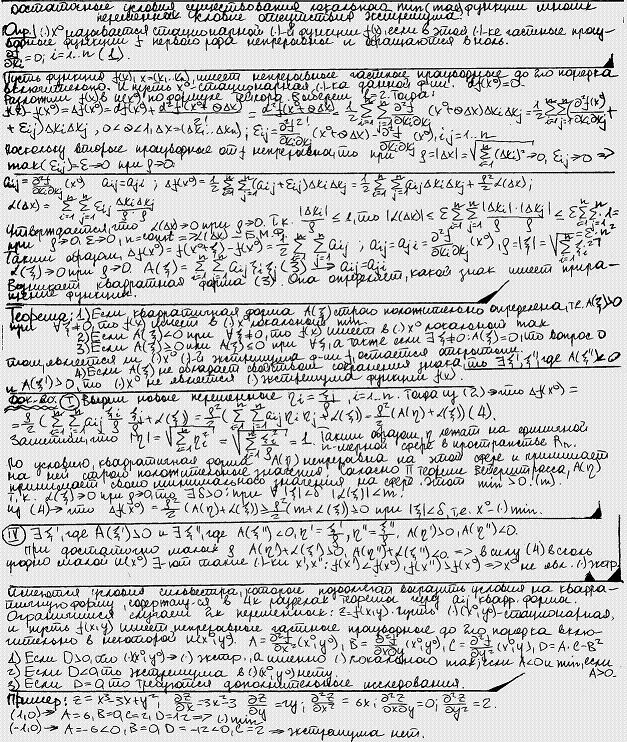 достаточные условия существования локального min (max) функции многих
переменных. Условие отсутствия экстремума.
Опр. (·)x⁰ называется стационарной (·)-й функции f(x), если в этой (·)-ке частные произ-
водные функции f первого рода непрерывные и обращаются в ноль.
∂f/∂xi = 0; i=1..n (1).
Пусть функция f(x), x=(x₁..xn), имеет непрерывные частные производные до 2го порядка
включительно. И пусть x⁰ - стационарная (·)-ка данной ф-ии. df(x⁰)=0
Разложим f(x) в u(x⁰) по формуле Тейлора. Выберем l=2. Тогда:
f(x)-f(x⁰)=Δf(x⁰)=df(x⁰)+d²f(x⁰+θΔx)/2! = d²f(x⁰+θΔx)/2! = 1/2 Σ Σ ∂²f/∂xi∂xj (x⁰+θΔx)ΔxiΔxj = 1/2 Σ Σ (∂²f(x⁰)/∂xi∂xj +
+ εij)ΔxiΔxj, 0<θ<1, Δx=(Δx₁..Δxn); εij = ∂²f/∂xi∂xj (x⁰+θΔx) - ∂²f/∂xi∂xj (x⁰), i,j=1..n
Поскольку вторые производные от f непрерывны, то при ρ=|Δx|=√Σ(Δxi)² → 0, εij → 0 ⇒
max|εij|=ε→0 при ρ→0.
aij = ∂²f/∂xi∂xj (x⁰) aij=aji; Δf(x⁰)=1/2 Σ Σ (aij+εij)ΔxiΔxj = 1/2 Σ Σ aijΔxiΔxj + ρ²/2 α(Δx);
α(Δx) = Σ Σ εij Δxi/ρ Δxj/ρ
Утверждается, что α(Δx)→0 при ρ→0. Т.к. |Δxi|/ρ ≤ 1, то |α(Δx)| ≤ ε Σ Σ |Δxi|/ρ · |Δxj|/ρ ≤ ε Σ Σ 1 =
при ρ→0, ε→0, n=const ⇒ α(Δx) - Б.М.Ф. = ε·n²
Таким образом, Δf(x⁰)=f(x⁰+ξ)-f(x⁰)=1/2 Σ Σ aij; aij=aji=∂²f/∂xi∂xj (x⁰), ρ=|ξ|=√Σ ξi²
α(ξ)→0 при ρ→0. A(ξ)=Σ Σ aij ξi ξj (3) aij=aji
Возникает квадратная форма (3). Она определяет, какой знак имеет прира-
щение функции.
Теорема: 1) Если квадратичная форма A(ξ) строго положительно определена, т.е. A(ξ)>0
при ∀ξ≠0, то f(x) имеет в (·)x⁰ локальный min.
2) Если A(ξ)<0 при ∀ξ≠0, то f(x) имеет в (·)x⁰ локальной max
3) Если A(ξ)≥0 при A(ξ)≤0 при ∀ξ, а также если ∃ξ≠0: A(ξ)=0, то вопрос о
том, является ли (·)x⁰ (·)-й экстремума ф-ии f, остается открытым.
4) Если A(ξ) не обладает свойством сохранения знака, то ∃ξ', ξ'', где A(ξ'')<0
и A(ξ')>0, то (·)x⁰ не является (·) экстремума функции f(x).
Док-во. (I) Введём новые переменные ηi=ξi/ρ, i=1..n. Тогда из (2)→что Δf(x⁰)=
= ρ²/2 (Σ Σ aij ξi/ρ ξj/ρ + α(ξ)) = ρ²/2 (Σ Σ aij ηi ηj + α(ξ)) = ρ²/2 (A(η)+α(ξ)) (4).
Заметим, что |η|=√Σ ηi² = √Σ ξi²/ρ² = 1. Таким образом, η лежат на единичной
n-мерной сфере в пространстве Rn.
По условию, квадратичная форма A(η) непрерывна на этой сфере и принимает
на ней строго положительное значения. Согласно II теореме Вейерштрасса, A(η)
принимает своего минимального значения на сфере. Этот min>0. (m).
Т.к. α(ξ)→0 при ρ→0, то ∃δ>0: при ∀|ξ|<δ |α(ξ)|<m.
Из (4)→что Δf(x⁰)=ρ²/2 (A(η)+α(ξ))≥ρ²/2 (m+α(ξ))>0 при |ξ|<δ, т.е. x⁰ - (·) min.
(IV) ∃ξ', где A(ξ')>0 и ∃ξ'', где A(ξ'')<0, η'=ξ'/ρ', η''=ξ''/ρ''. A(η')>0, A(η'')<0.
При достаточно малой ρ A(η')+α(ξ')>0, A(η'')+α(ξ'')<0 ⇒ в силу (4) в сколь
угодно малой u(x⁰) ∃-ют такие (·)-ки x', x'': f(x')<f(x⁰), f(x'')>f(x⁰) ⇒ x⁰ не явл. (·) экстр.
Имеются условия Сильвестра, которые позволяют выразить условия на квадра-
тичную форму, содержащуюся в 4х разделах теоремы через aij квадр. формы.
Ограничимся случаем 2х переменных: z=f(x,y). Пусть (·)(x⁰,y⁰) - стационарная,
и пусть f(x,y) имеет непрерывные частные производные до 2го порядка вклю-
чительно в некоторой u(x⁰,y⁰). A=∂²f/∂x² (x⁰,y⁰), B=∂²f/∂x∂y (x⁰,y⁰), C=∂²f/∂y² (x⁰,y⁰), D=A·C-B²
1) Если D>0, то (·)(x⁰,y⁰)→(·) экстр., а именно (·) локального max, если A<0 и min, если A>0.
2) Если D<0, то экстремума в (·)(x⁰,y⁰) нету.
3) Если D=0, то требуются дополнительные исследования.
Пример: z=x³-3x+y², ∂z/∂x=3x²-3, ∂z/∂y=2y, ∂²z/∂x²=6x; ∂²z/∂x∂y=0; ∂²z/∂y²=2.
(1,0)→A=6, B=0, C=2, D=12→(·) min
(-1,0)→A=-6<0, B=0, D=-12<0, C=2→экстремума нет.